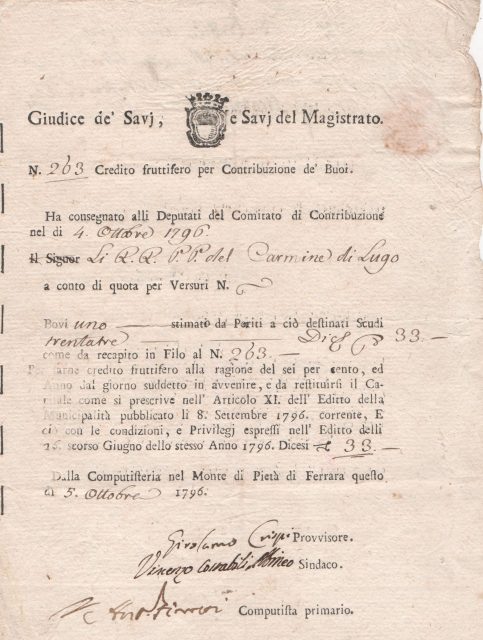 Giudice de' Savj, e Savj del Magistrato.
N. 263 Credito fruttifero per Contribuzione de' Buoi.
Ha consegnato alli Deputati del Comitato di Contribuzione
nel dì 4. Ottobre 1796.
Il Signor Li R.R. P.P. del Carmine di Lugo
a conto di quota per Versuri N.
Bovi uno stimato da Periti a ciò destinati Scudi
trentatre Dico 33.—
come da recapito in Filo al N. 263.—
Per farne credito fruttifero alla ragione del sei per cento, ed
Anno dal giorno suddetto in avvenire, e da restituirsi il Ca-
pitale come si prescrive nell' Articolo XI. dell' Editto della
Municipalità pubblicato li 8. Settembre 1796. corrente, E
ciò con le condizioni, e Privilegj espressi nell' Editto delli
26. scorso Giugno dello stesso Anno 1796. Dicesi 33.—
Dalla Computisteria nel Monte di Pietà di Ferrara questo
dì 5. Ottobre 1796.
Girolamo Crispi Provvisore.
Vincenzo Sindaco.
Computista primario.